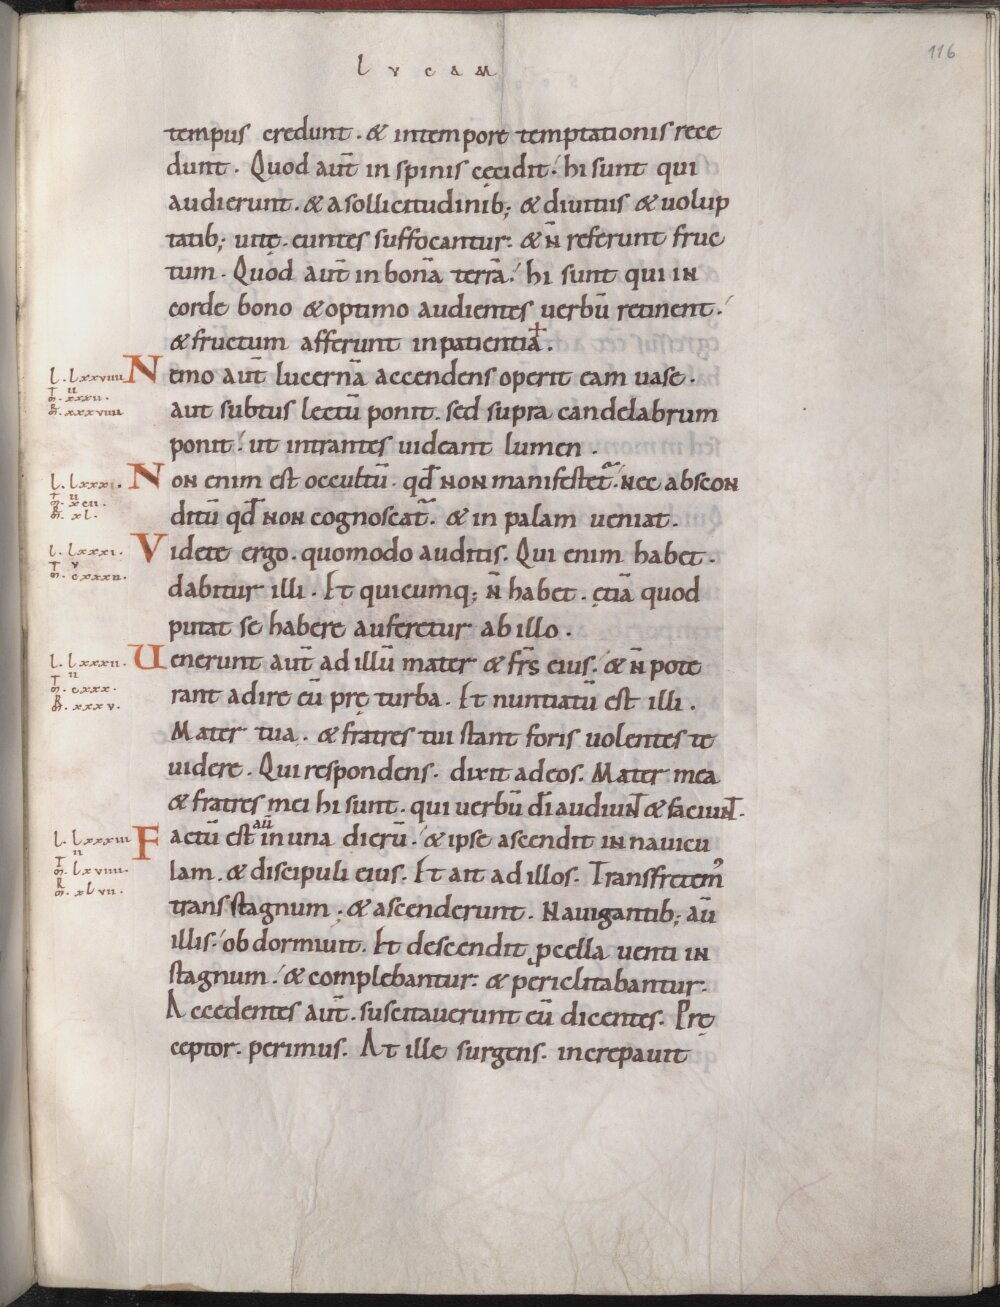 116
LVCAM
tempus credunt · & intempore temptationis rece
dunt · Quod aut̄ in spinis cęcidit · hi sunt qui
audierunt · & a sollicitudinib; & diuitiis & uolup
tatib; uitę · euntes suffocantur · & n̄ referunt fruc
tum · Quod aut̄ in bonā terrā · hi sunt qui in
corde bono & optimo audientes uerbū retinent ·
& fructum afferunt in patientia ·
l. lxxviiii Nemo aut̄ lucernā accendens operit eam uase ·
aut subtus lectū ponit · sed supra candelabrum
ponit · ut intrantes uideant lumen ·
Non enim est occultū · qd̄ non manifestet᷑ · nec abscon
ditū qd̄ non cognoscat᷑ · & in palam ueniat ·
l. lxxxi. Videte ergo · quomodo auditis · Qui enim habet ·
dabitur illi · Et quicumq; n̄ habet · ętiā quod
putat se habere auferetur ab illo ·
l. lxxxii. Uenerunt aut̄ ad illū mater & frs̄ eius · & n̄ pote
rant adire eū prę turba · Et nuntiatū est illi ·
Mater tua · & fratres tui stant foris uolentes te
uidere · Qui respondens · dixit ad eos · Mater mea
& fratres mei hi sunt · qui uerbū dī audiunt & faciunt ·
l. lxxxiii Factū est aū in una dierū · & ipse ascendit in nauicu
lam · & discipuli eius · Et ait ad illos · Transfretem᾽
trans stagnum · & ascenderunt · Nauigantib; aū
illis · obdormiuit · Et descendit ꝓcella uenti in
stagnum · & complebantur · & periclitabantur ·
Accedentes aut̄ · suscitauerunt eū dicentes · Prę
ceptor · perimus · At ille surgens · increpauit